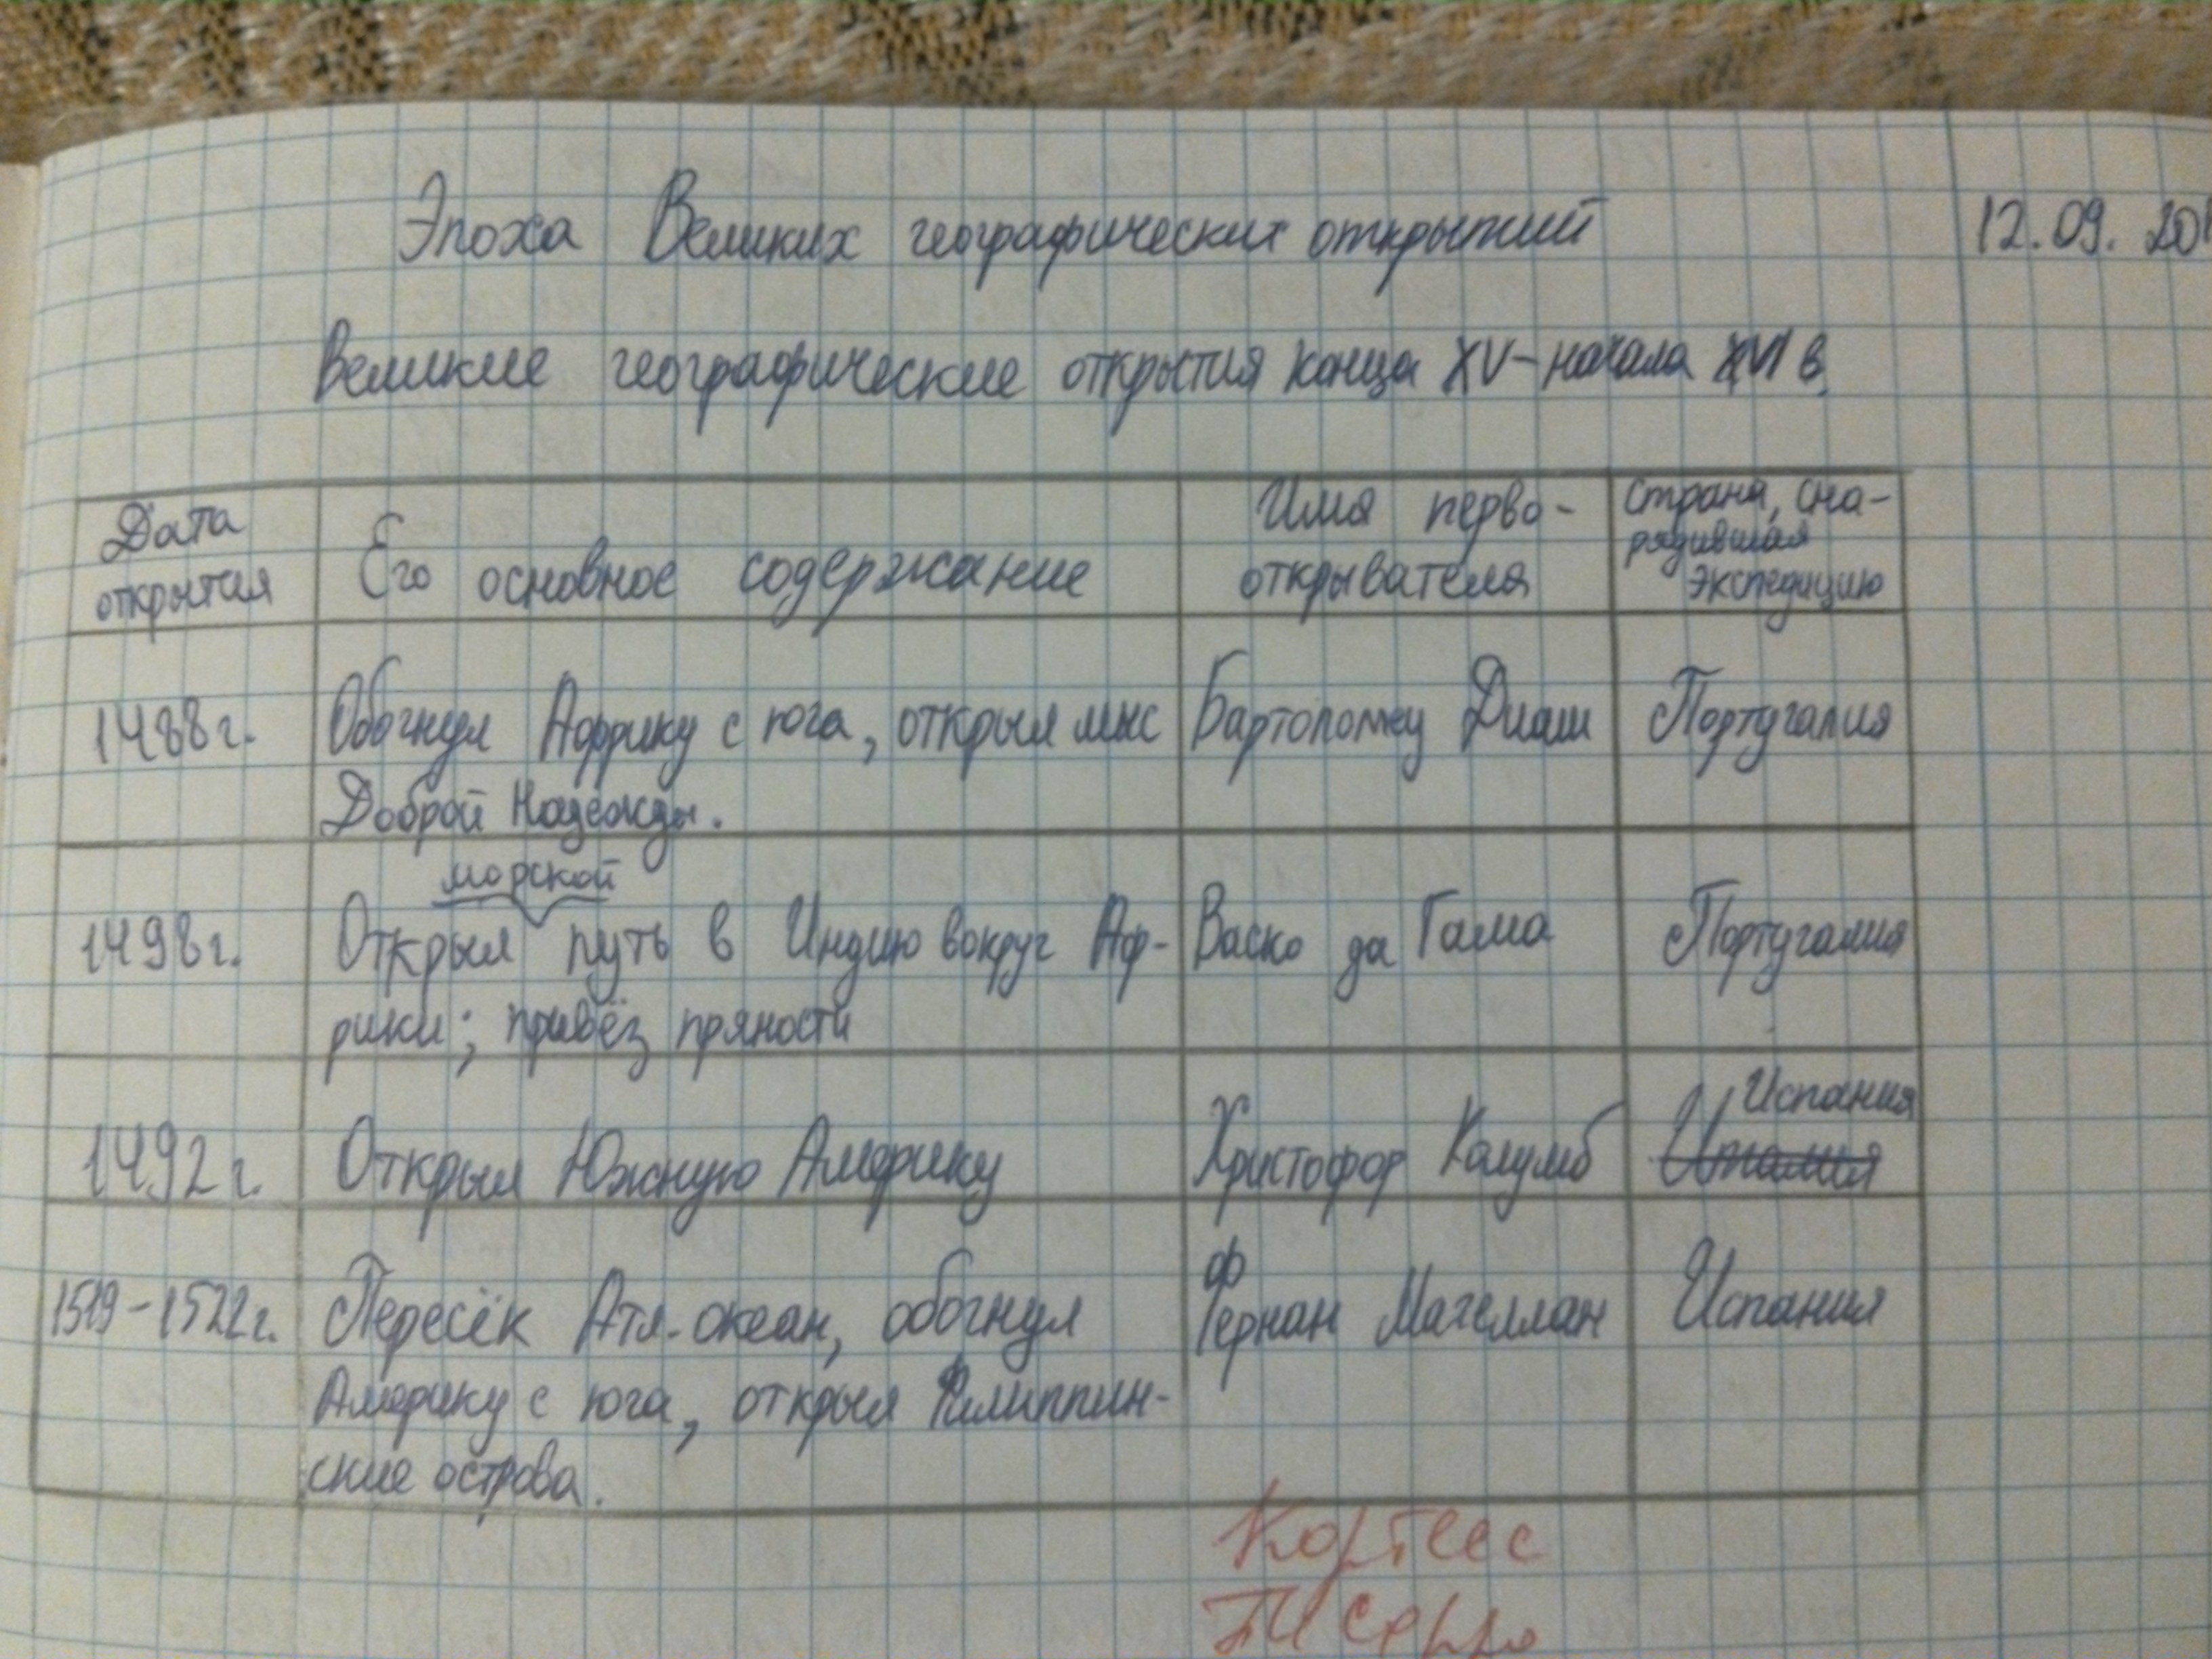 Эпоха Великих географических открытий
12.09.20
Великие географические открытия конца XV – начала XVI в.
Дата
открытия
Его основное содержание
Имя перво-
открывателя
Страна, сна-
рядившая
экспедицию
1488 г.
Обогнул Африку с юга, открыл мыс
Доброй Надежды.
Бартоломеу Диаш
Португалия
1498 г.
морской
Открыл путь в Индию вокруг Аф-
рики; привёз пряности
Васко да Гама
Португалия
1492 г.
Открыл Южную Америку
Христофор Колумб
Испания
Италия
1519 – 1522 г.
Пересёк Атл. океан, обогнул
Америку с юга, открыл Филиппин-
ские острова.
Ф
Фернан Магеллан
Испания
Кортес